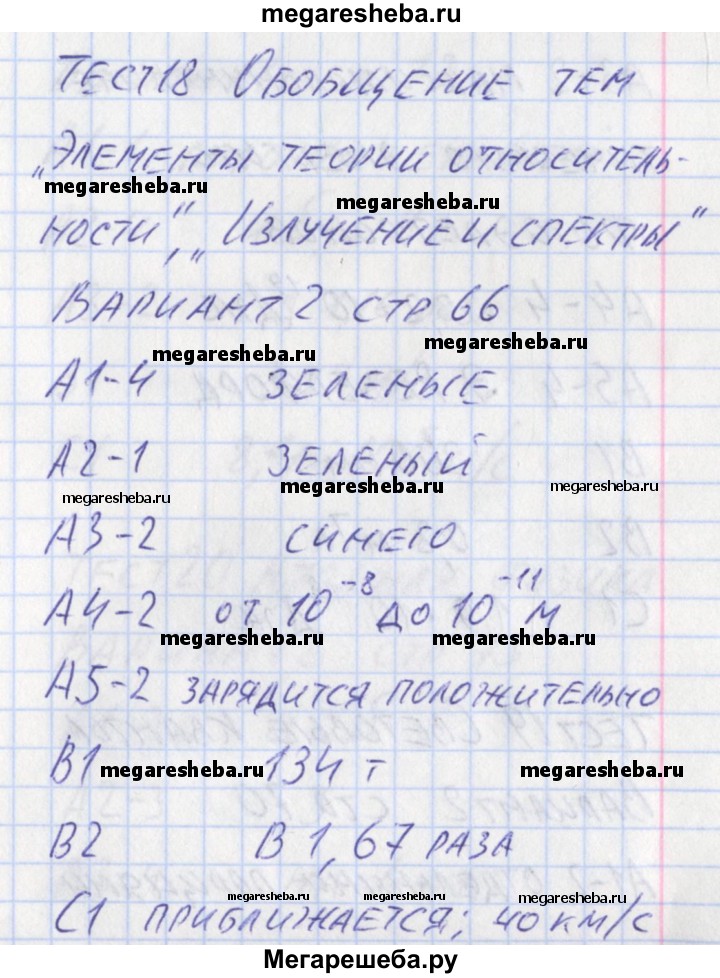 megaresheba.ru
Тест 18 Обобщение тем
„Элементы теории относитель-
megaresheba.ru megaresheba.ru
ности“, „Излучение и спектры“
Вариант 2 стр 66
megaresheba.ru megaresheba.ru
А1-4 зеленые
А2-1 зеленый
megaresheba.ru megaresheba.ru megaresheba.ru
А3-2 синего
А4-2 от 10⁻⁸ до 10⁻¹¹ м
megaresheba.ru megaresheba.ru
А5-2 зарядится положительно
В1 megaresheba.ru 134 т megaresheba.ru
В2 в 1,67 раза
megaresheba.ru megaresheba.ru megaresheba.ru
С1 приближается; 40 км/с
Мегарешеба.ру